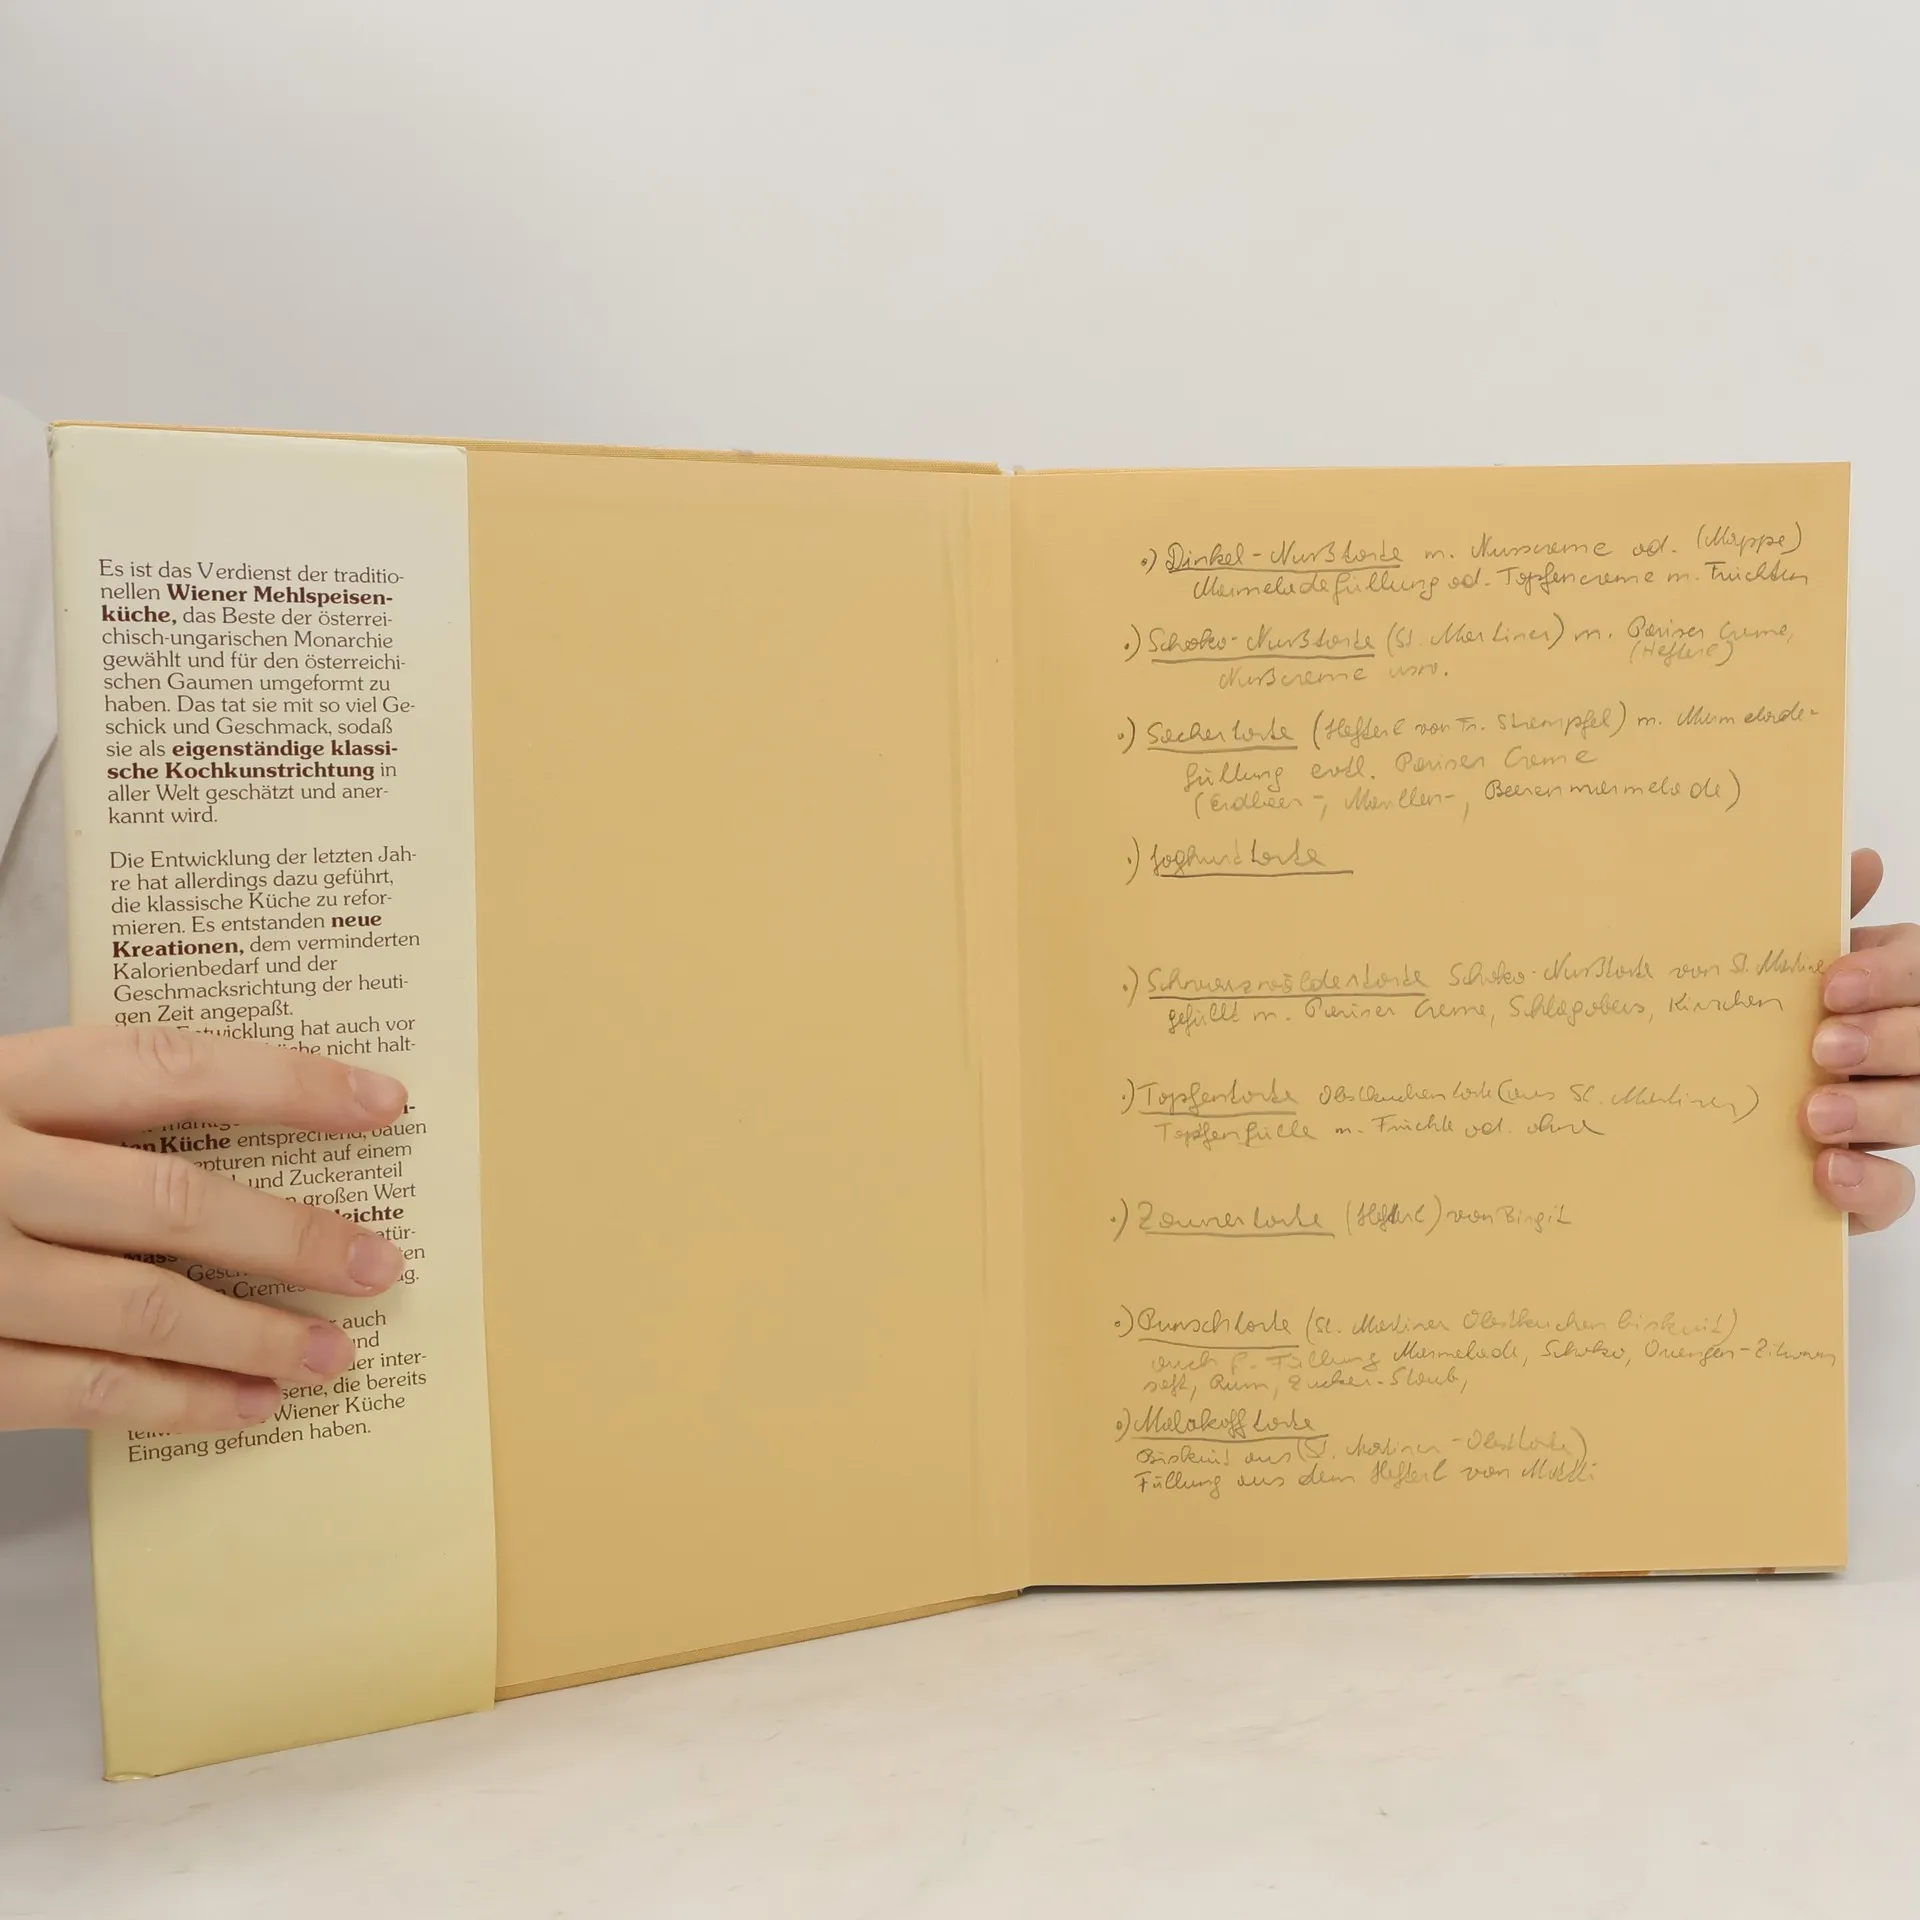 Es ist das Verdienst der traditio-
nellen Wiener Mehlspeisen-
küche, das Beste der österrei-
chisch-ungarischen Monarchie
gewählt und für den österreichi-
schen Gaumen umgeformt zu
haben. Das tat sie mit so viel Ge-
schick und Geschmack, sodaß
sie als eigenständige klassi-
sche Kochkunstrichtung in
aller Welt geschätzt und aner-
kannt wird.
Die Entwicklung der letzten Jah-
re hat allerdings dazu geführt,
die klassische Küche zu refor-
mieren. Es entstanden neue
Kreationen, dem verminderten
Kalorienbedarf und der
Geschmacksrichtung der heuti-
gen Zeit angepaßt.
hat auch vor
nicht halt-
Küche entsprechend, bauen
nicht auf einem
und Zuckeranteil
großen Wert
leichte
Cremes
auch
und
inter-
die bereits
Wiener Küche
Eingang gefunden haben.
.) Dinkel-Nußtorte m. Nusscreme od. (Mappe)
Marmeladefüllung od. Topfencreme m. Früchten
.) Schoko-Nußtorte (St. Martiner) m. Pariser Creme,
(Hefterl)
Nußcreme usw.
.) Sachertorte (Hefterl von Fr. Stempfel) m. Marmelade-
füllung evtl. Pariser Creme
(Erdbeer-, Marillen-, Beerenmarmelade)
.) Joghurttorte
.) Schwarzwäldertorte Schoko-Nußtorte von St. Martiner
gefüllt m. Pariser Creme, Schlagobers, Kirschen
.) Topfentorte Obstkuchentorte (aus St. Martiner)
Topfenfülle m. Früchte od. ohne
.) Zaunertorte (Hefterl) von Birgit
.) Punschtorte (St. Martiner Obstkuchen biskuit)
auch f. Füllung Marmelade, Schoko, Orangen-Zitronen
saft, Rum, Zucker-Staub,
.) Malakofftorte
Biskuit aus (St. Martiner-Obsttorte)
Füllung aus dem Hefterl von